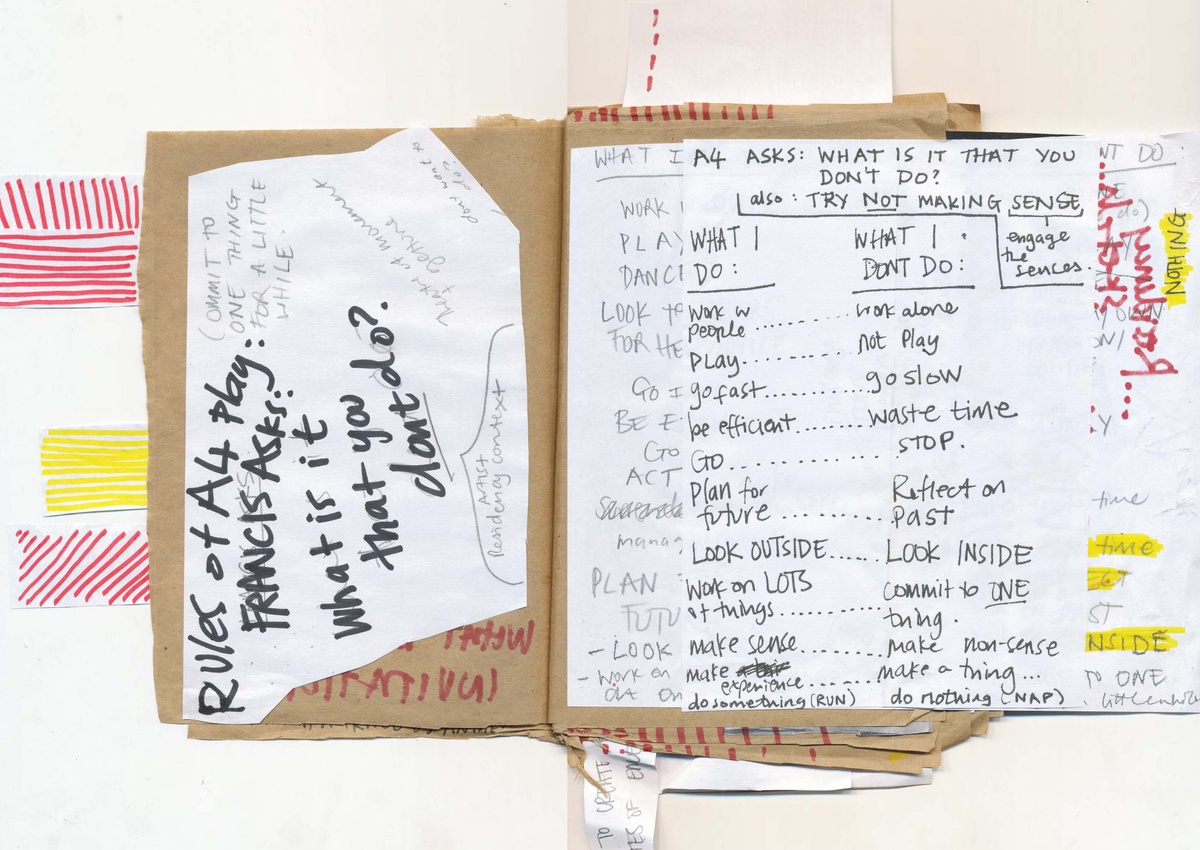 (COMMIT TO
ONE THING
FOR A LITTLE
WHILE.
RULES of A4 Play:
FRANCIS Asks:
What is it
that you do?
dont
Residency context
Artist
A4 ASKS: WHAT IS IT THAT YOU
DON'T DO?
also: TRY NOT MAKING SENSE
engage
the
sences.
WHAT I
DO:
WHAT I
DONT DO:
work w
people ........ work alone
PLAY.......... not Play
go fast.......... go slow
be efficient........ waste time
GO............. STOP.
Plan for
future ........ Reflect on
Past
LOOK OUTSIDE..... LOOK INSIDE
WORK on LOTS
of things......... commit to ONE
thing.
make sense........ make non-sense
make
experience ...... make a thing...
do something (RUN) do nothing (NAP)
WHAT I
WORK
PLAY
DANCI
LOOK TO
FOR HE
GO I
BE E
GO
ACT
manag
PLAN
FUTU
- LOOK
- WORK on
NT DO
do)
OWN
Y
time
time
ST
NSIDE
TO ONE
NOTHING
TO CREATE